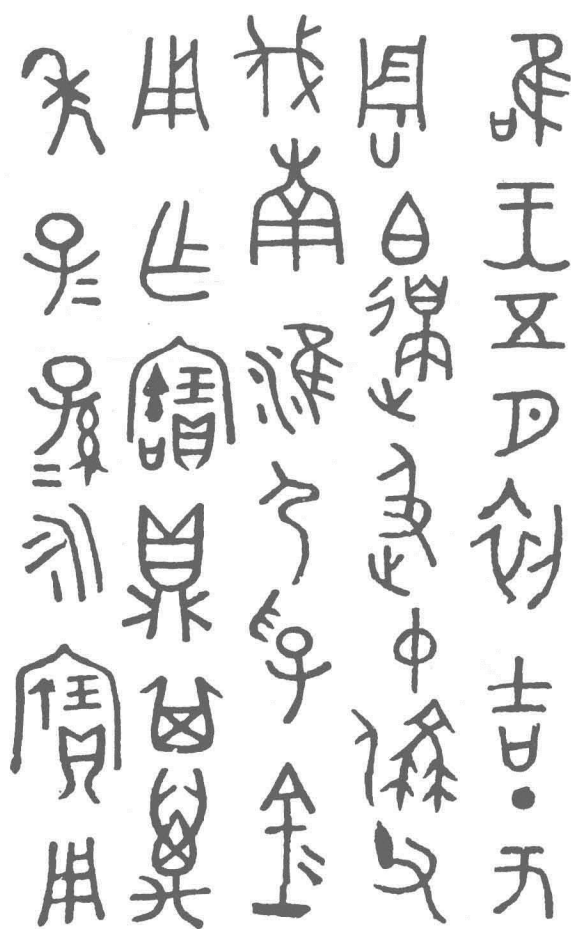 唯王五月初吉丁亥
周白邊及中父
伐南淮尸孚金
用乍寶鼎其萬
年子=孫=永寶用